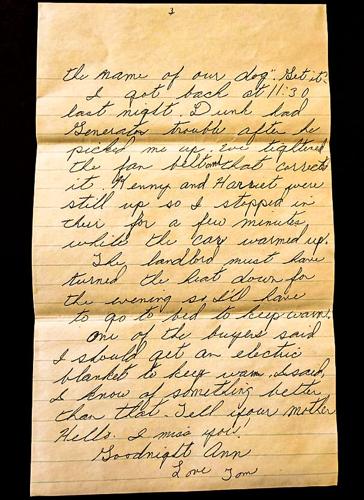 3
the name of our dog". Get it?
I got back at 11:30
last night. Dunk had
Generator trouble after he
picked me up. We tightened
the fan belt and that corrects
it. Kenny and Harriet were
still up so I stopped in
their for a few minutes
while the car warmed up.
The landlord must have
turned the heat down for
the evening so I'll have
to go to bed to keep warm.
One of the buyers said
I should get an electric
blanket to keep warm. I said,
I know of something better
than that. Tell your mother
Hello. I miss you!
Goodnight Ann
Love Tom